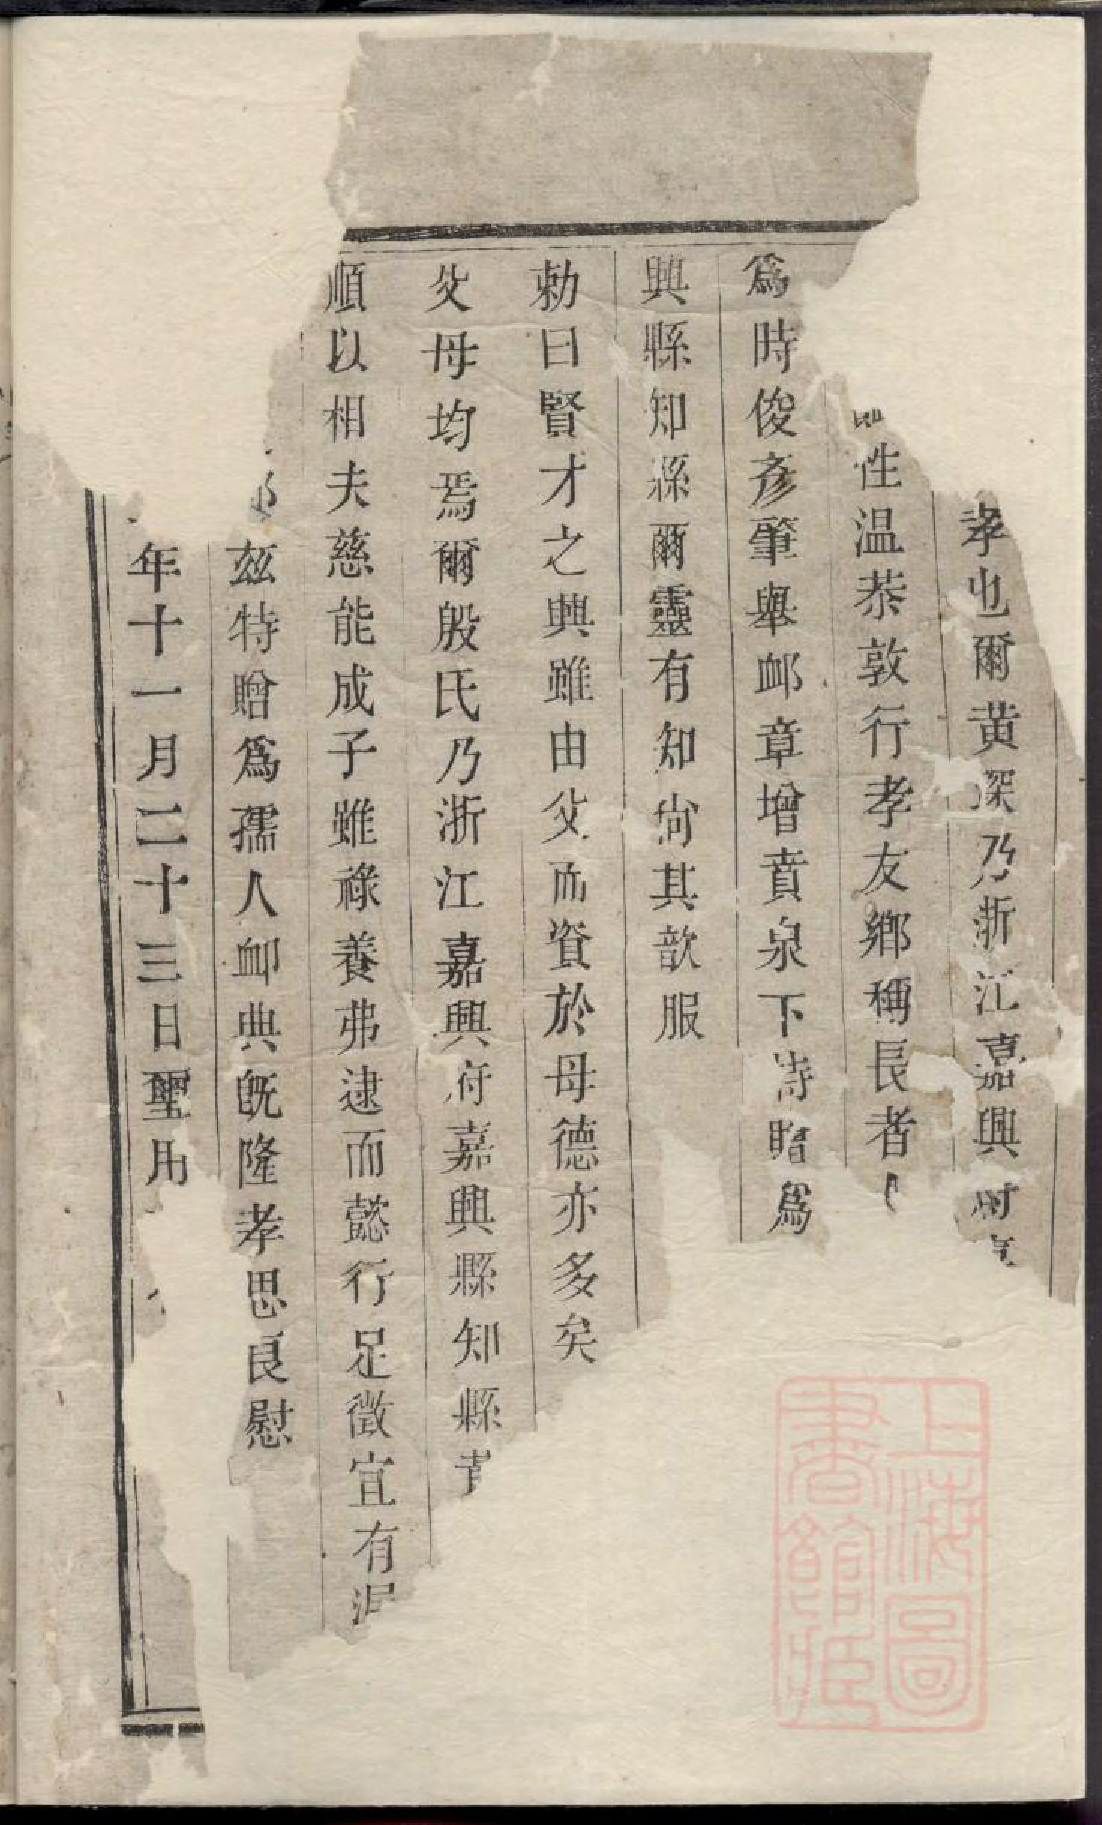 孝也爾黄深乃浙江嘉興
性温恭敦行孝友鄉稱長者
爲時俊彦肇舉䘏章增賁泉下特贈爲
興縣知縣爾靈有知尚其歆服
勅曰賢才之興雖由父而資於母德亦多矣
父母均焉爾殷氏乃浙江嘉興府嘉興縣知縣黄
順以相夫慈能成子雖祿養弗逮而懿行足徵宜有渥
兹特贈爲孺人䘏典旣隆孝思良慰
年十一月二十三日聖用
上海圖
書館藏